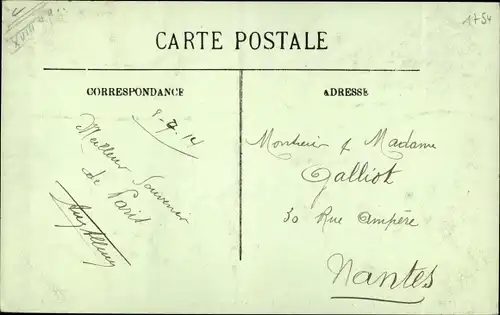 XVIII
1754
CARTE POSTALE
CORRESPONDANCE
ADRESSE
Meilleur Souvenir
de Paris
Monsieur & Madame
Galliot
30 Rue Ampère
Nantes